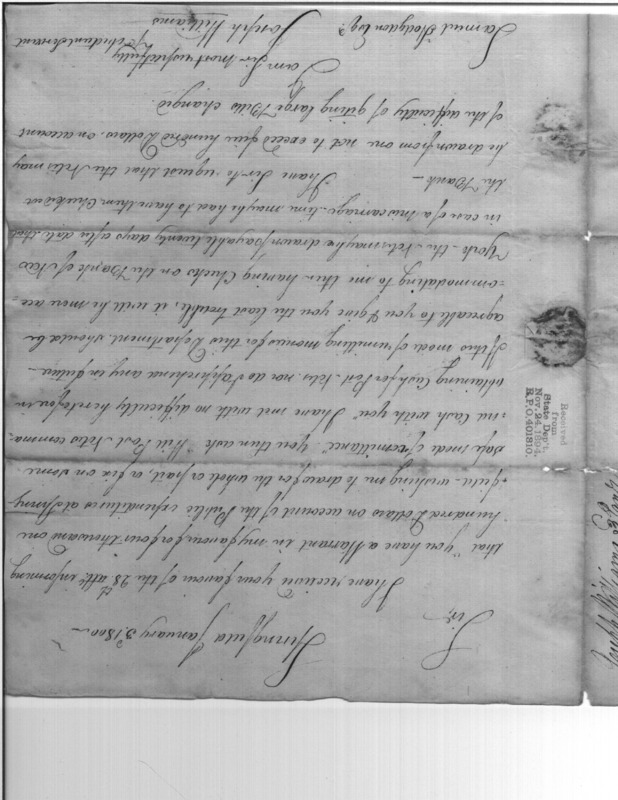 Springfield January 3. 1800 —
Sir,
I have received your favour of the 28th ulto. informing
that "you have a Warrant in my favour for four thousand one
hundred Dollars on account of the Public expenditures at Spring
field. wishing me to draw for the whole or part, or fix on some
safe mode of remittance." You then ask "Will Post Notes comma-
nd Cash with you" I have met with no difficulty heretofore in
obtaining Cash for Post Notes. nor do I apprehend any in future
If this mode of remitting monies for this Department should be
agreeable to you & give you the least trouble, it will be more acc-
-ommodating to me then having Checks on the Bank of New
York — the Notes may be drawn payable twenty days after date that
in case of a miscarriage time may be had to have them Checked at
the Bank —
I have Sir to request that the Notes may
be drawn from one not to exceed five hundred Dollars, on account
of the difficulty of giting large Bills changed.
I am Sir most respectfully
Yr Obedient Servant
Joseph Williams
Samuel Hodgdon Esqr.
Received
from
State Dep't.
Nov. 24, 1894.
R.P.O. 401810.